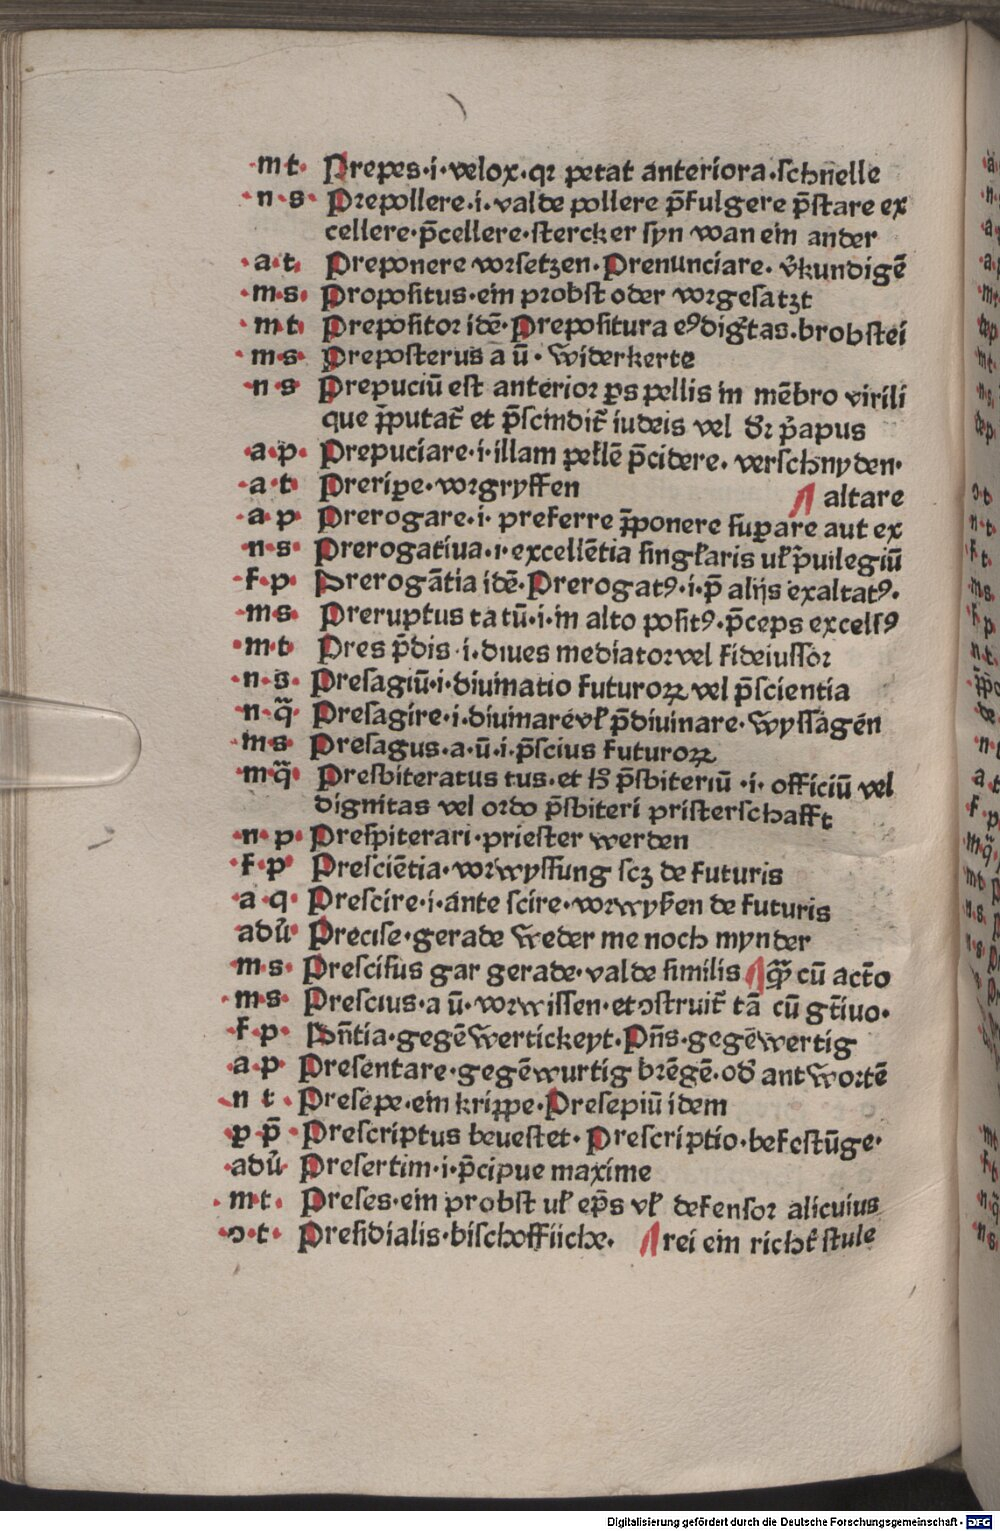 ·m t· Prepes·i·velox·qꝛ petat anteriora·ſchnelle
·n·s· Prepollere·i·valde pollere p̄fulgere p̄ſtare ex
cellere·p̄cellere·ſtercker ſyn wan ein ander
·a·t· Preponere vorſetzen·Prenunciare· v̓kundigē
·m·s· Propoſitus·ein probſt oder vorgeſatzt
·m t· Prepoſitor idē·Prepoſitura eꝰdigt̄as·brobſtei
·m·s· Prepoſterus a ū· widerkerte
·n s Prepuciū eſt anterior ꝑs pellis in mēbro virili
que p̄putat̄ et p̄ſcindit̄ iudeis vel dr̄ p̄apus
·a·p· Prepuciare·i·illam pellē p̄cidere· verſchnyden·
·a·t· Preripe·vorgryffen altare
·a p Prerogare·i· preferre p̄ponere ſuꝑare aut ex
·n·s· Prerogatiua·i·excellētia ſingl̓aris ul̓ p̄uilegiū
·f·p· Prerogātia idē·Prerogatꝰ·i·p̄ alijs exaltatꝰ·
·m·s· Preruptus ta tū·i·in alto poſitꝰ·p̄ceps excelſꝰ
·m·t· Pres p̄dis·i·diues mediator vel fideiuſſor
·n·s· Preſagiū·i·diuinatio futuroꝝ vel p̄ſcientia
·n·q̄· Preſagire·i·diuinare vl̓ p̄diuinare·wyſſagen
·m s· Preſagus·a·ū·i·p̄ſcius futuroꝝ
·mq̄· Preſbiteratus tus·et h̓ p̄ſbiteriū ·i· officiū vel
dignitas vel ordo p̄ſbiteri priſterſchafft
·n·p· Preſpiterari·prieſter werden
·f·p· Preſciētia·vorwyſſung ſcꝫ de futuris
·a·q· Preſcire·i·ante ſcire·vorwyſſen de futuris
adū· Preciſe·gerade weder me noch mynder
·m·s· Preſciſus gar gerade·valde ſimilis cū act̄o
·m·s· Preſcius·a ū·vorwiſſen·et ꝯſtruit̄ tā cū gt̄iuo·
·f·p· Pn̄tia·gegēwertickeyt·Pn̄s·gegēwertig
·a·p· Preſentare·gegēwurtig brēgē·od̓ antwortē
·n t· Preſepe·ein krippe·Preſepiū idem
·ꝑ p̄· Preſcriptus beueſtet·Preſcriptio·befeſtūge·
·adū· Preſertim·i·p̄cipue maxime
·m·t· Preſes·ein probſt ul̓ ep̄s vl̓ defenſor alicuius
·ꝯ·t· Preſidialis·biſchoffliche· rei ein richt̓ ſtule
Digitalisierung gefördert durch die Deutsche Forschungsgemeinschaft - DFG